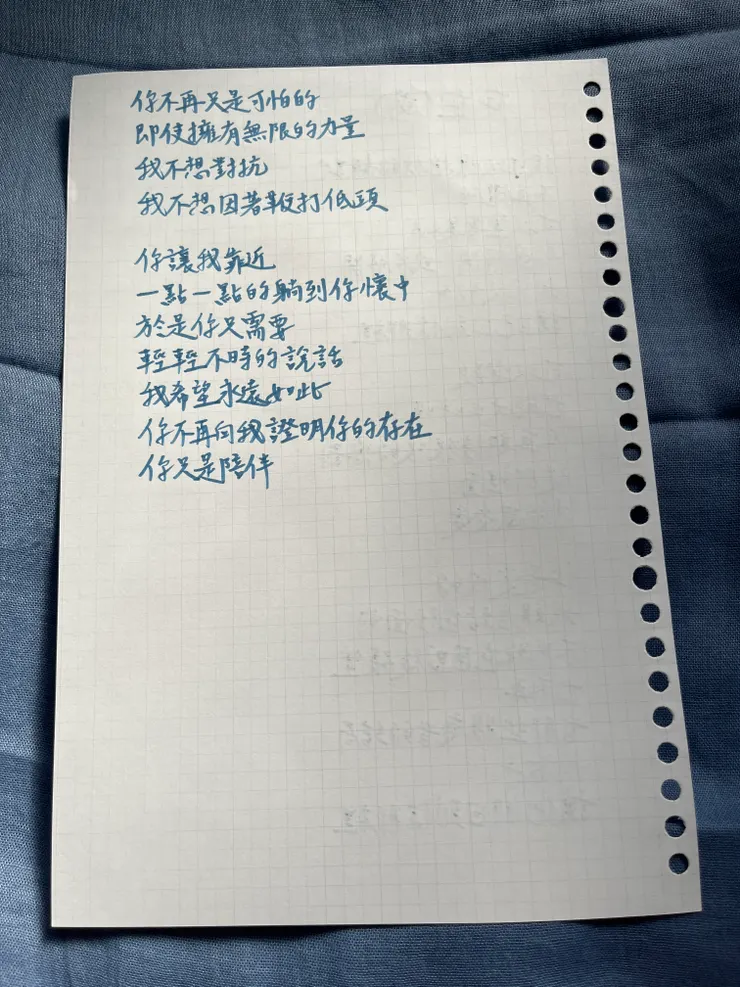 你不再只是可怕的
即使擁有無限的力量
我不想對抗
我不想因著鞭打低頭
你讓我靠近
一點一點的躺到你懷中
於是你只需要
輕輕不時的說話
我希望永遠如此
你不再向我證明你的存在
你只是陪伴